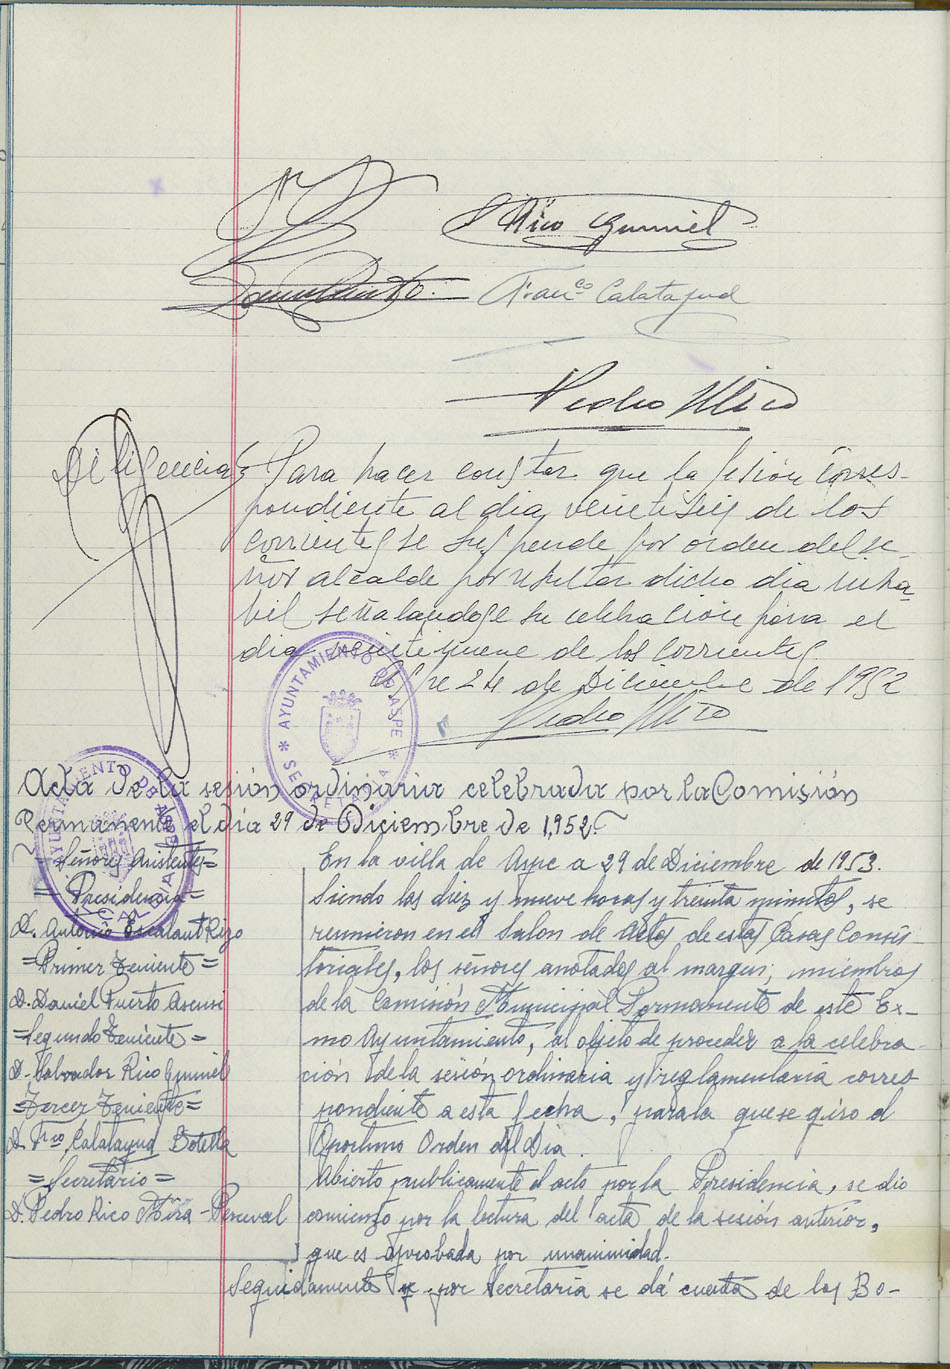 S. Rico Gumiel
Daniel Puerto
Franco Calatayud
Pedro M Rico
Diligencia: Para hacer constar que la sesión corres-
pondiente al dia, veintiseis de los
corrientes se suspende por orden del se-
ñor alcalde por resultar dicho dia inha-
bil señalandose su celebración para el
dia veintinueve de los corrientes
Aspe 24 de Diciembre de 1952
Pedro M Rico
* AYUNTAMIENTO DE ASPE *
SECRETARIA
Acta de la sesión ordinaria celebrada por la Comisión
Permanente el dia 29 de Diciembre de 1,952.
AYUNTAMIENTO DE ASPE
ALCALDIA
Señores Asistentes=
=Presidencia=
D. Antonio Escalant Rizo
=Primer Teniente=
D. Daniel Puerto Asensi
=Segundo Teniente=
D. Salvador Rico Gumiel
=Tercer Teniente=
D. Frco Calatayud Botella
=Secretario=
D. Pedro Rico Mira-Perceval
En la villa de Aspe a 29 de Diciembre de 1953.
Siendo las diez y nueve horas y treinta minutos, se
reunieron en el Salon de Actos de estas Casas Consis-
toriales, los señores anotados al margen, miembros
de la Comisión Municipal Permanente de este Ex-
mo Ayuntamiento, al objeto de proceder a la celebra-
ción de la sesión ordinaria y reglamentaria corres
pondiente a esta fecha, para la que se giro el
Oportuno Orden del Dia.
Abierto publicamente el acto por la Presidencia, se dio
comienzo por la lectura del acta de la sesión anterior,
que es aprobada por unanimidad.
Seguidamente y por Secretaría se dá cuenta de los Bo-